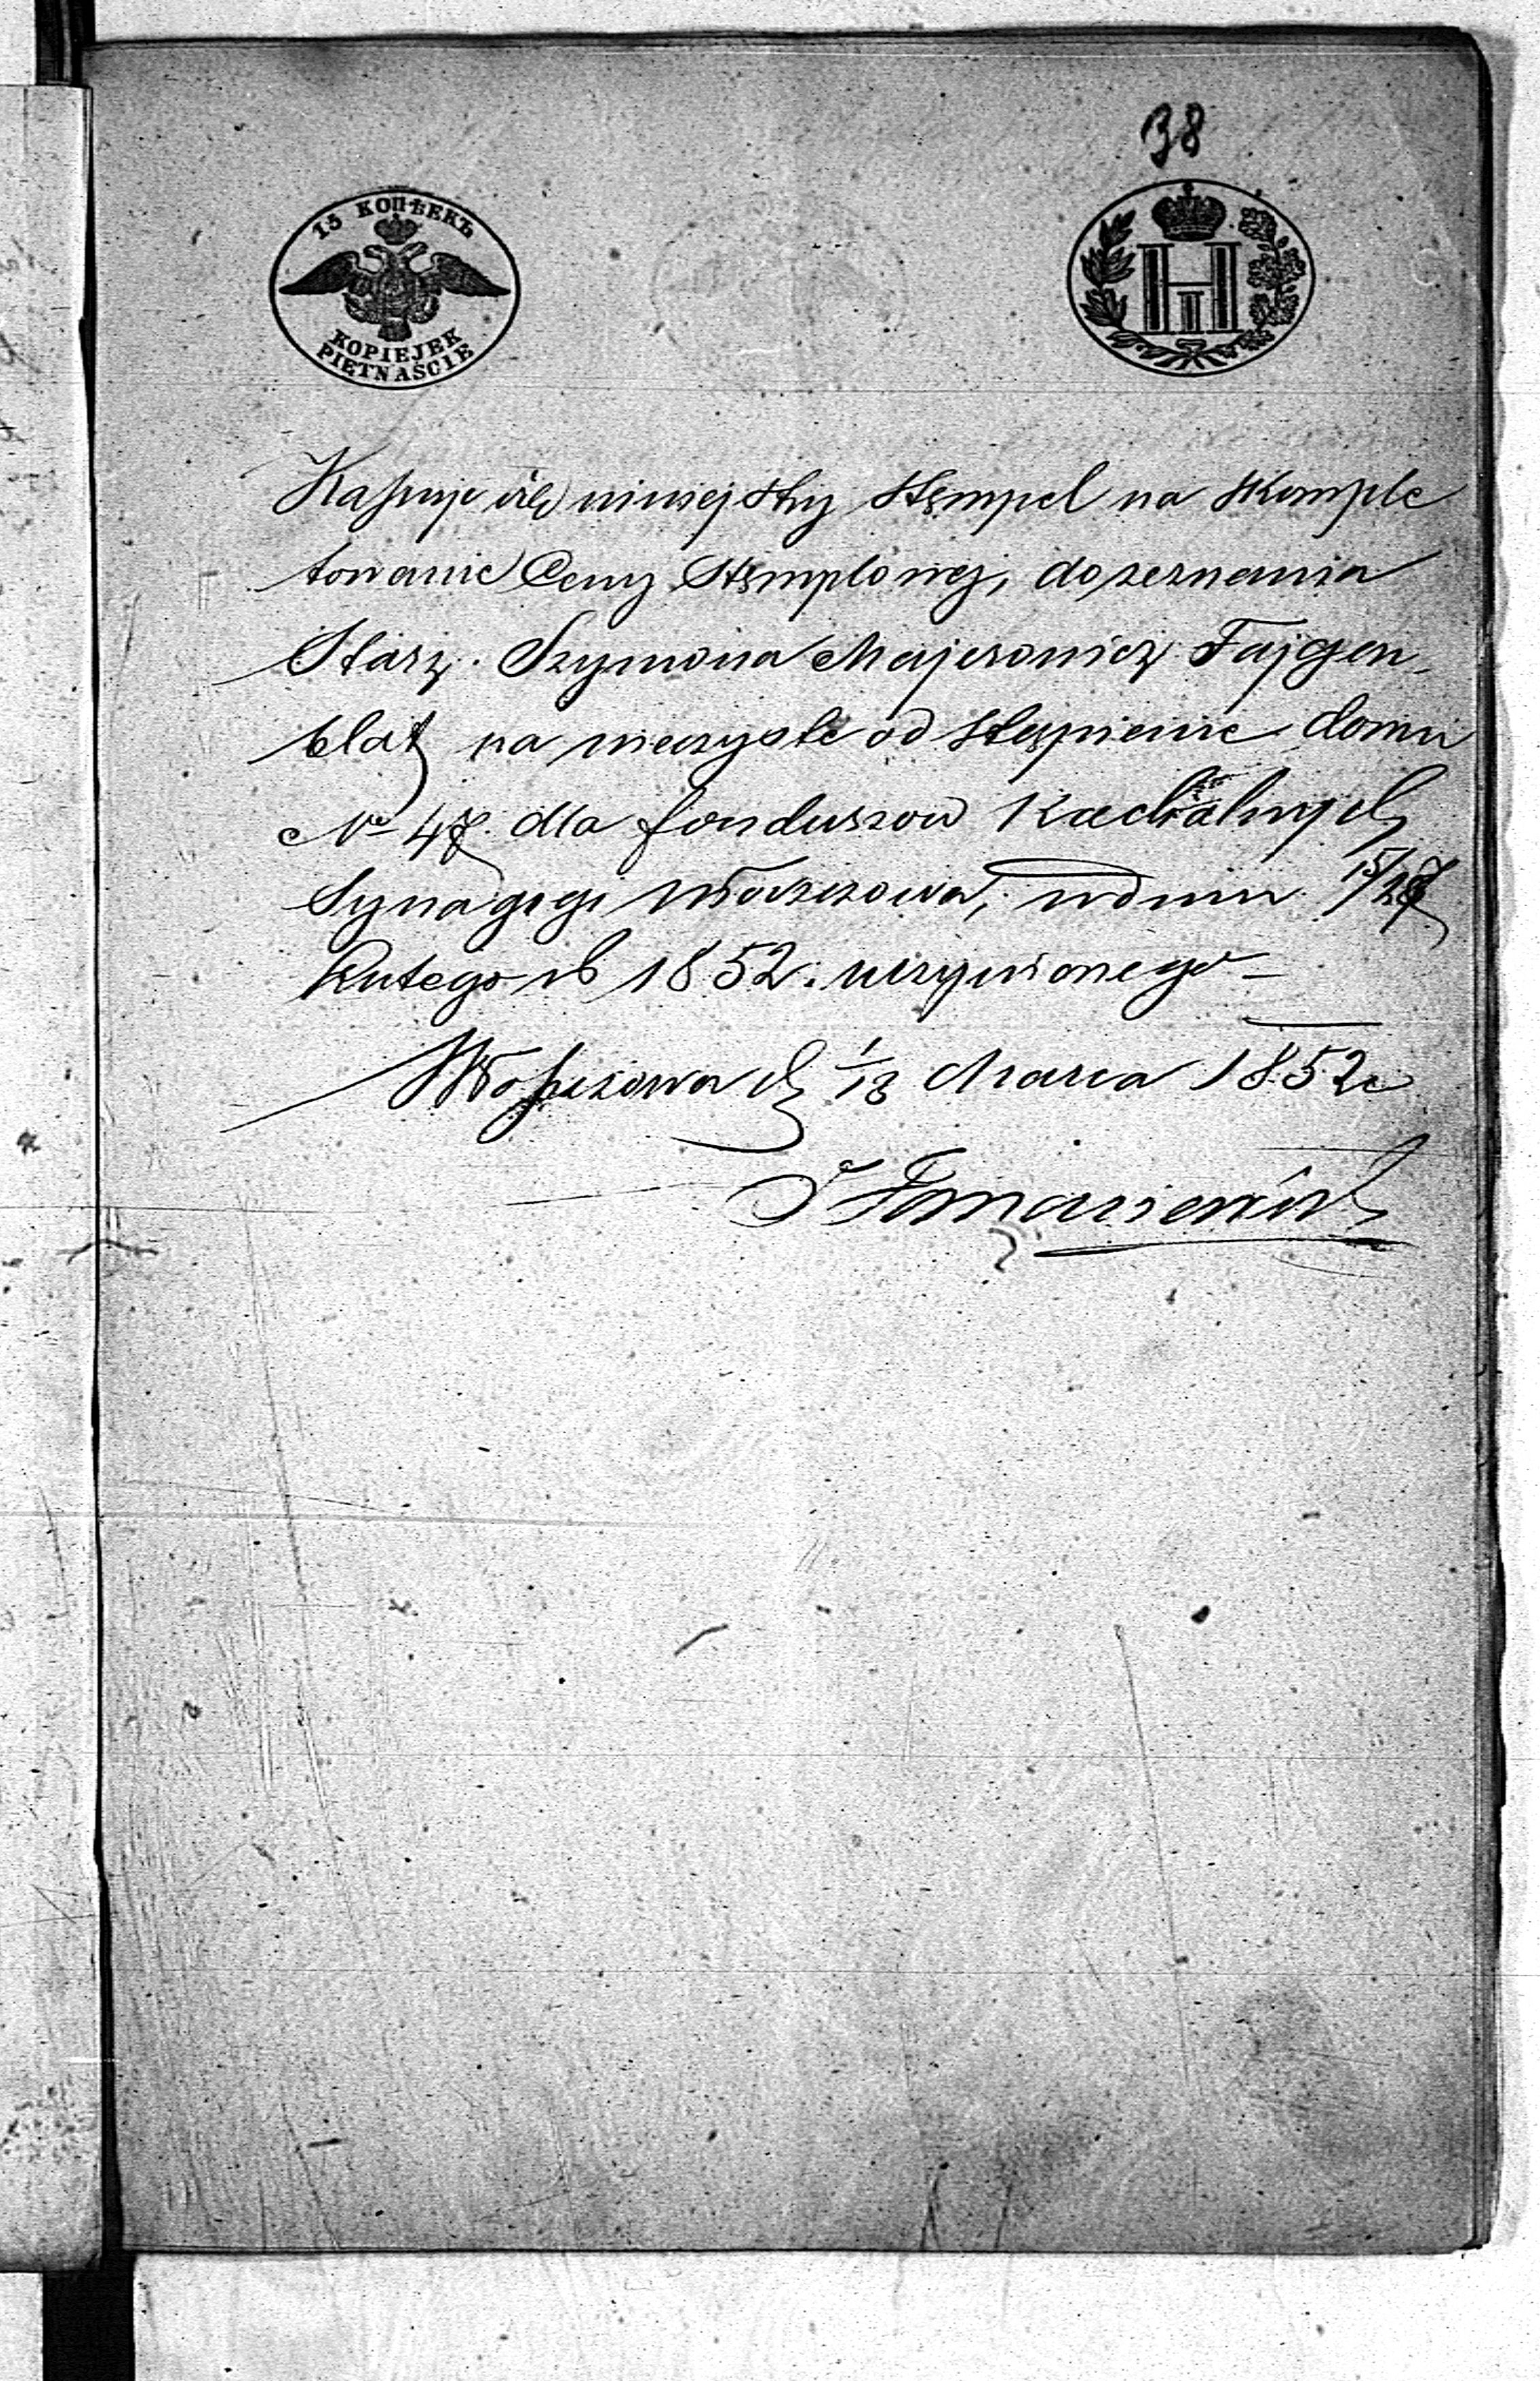 38
15 КОПѢЕКЪ
KOPIEJEK
PIĘTNAŚCIE
Kassuje się niniejszy stempel na skomple
towanie Ceny Stemplowej, do zeznania
Starz. Szymona Majerowicz Fajgen
blat na wieczyste odstąpienie domu
No 47. dla funduszow Kachalnych
Synagogi Włoszczowa, w dniu 15/27
Lutego rb 1852. uczynionego
Włoszczowa d 1/13 Marca 1852 r